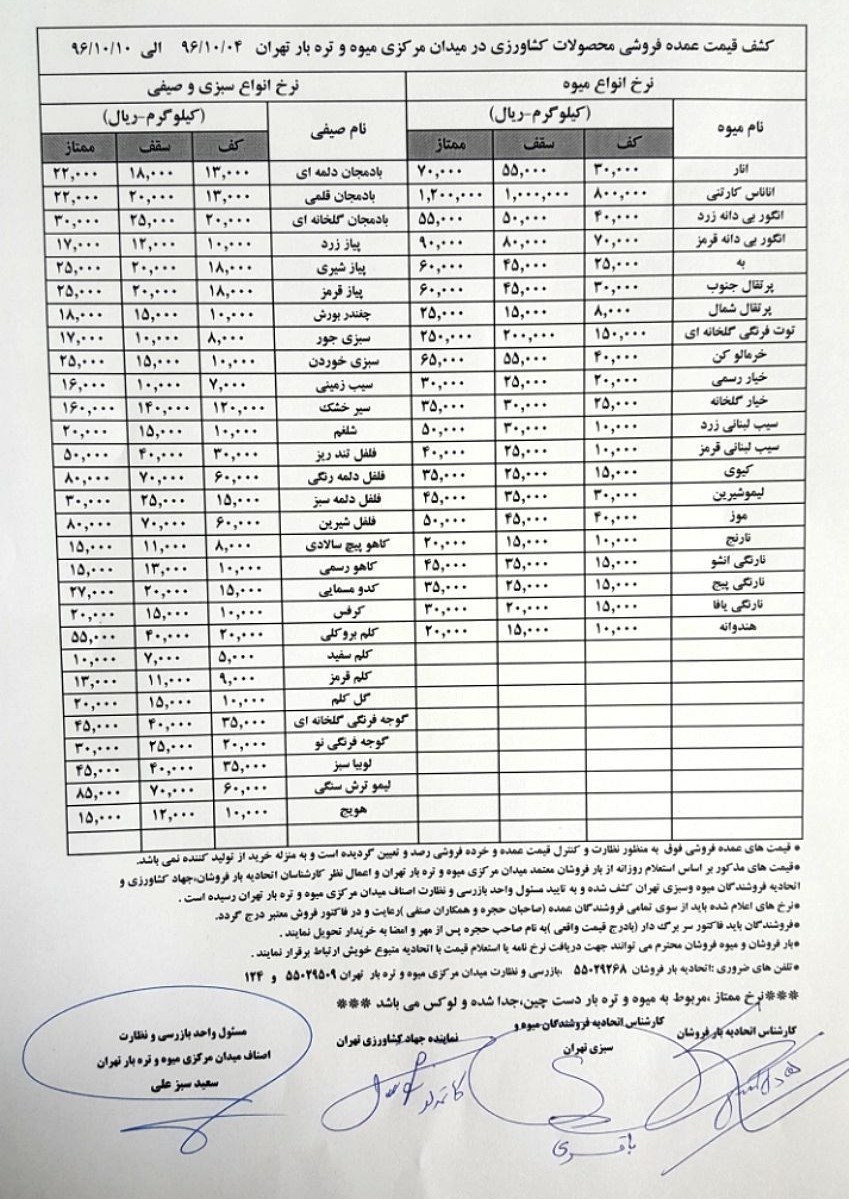 کشف قیمت عمده فروشی محصولات کشاورزی در میدان مرکزی میوه و تره بار تهران ۹۶/۱۰/۰۴ الی ۹۶/۱۰/۱۰
نرخ انواع میوه
نام میوه (کیلوگرم-ریال)
کف سقف ممتاز
انار ۳۰,۰۰۰ ۵۵,۰۰۰ ۷۰,۰۰۰
اناناس کارتنی ۸۰۰,۰۰۰ ۱,۰۰۰,۰۰۰ ۱,۲۰۰,۰۰۰
انگور بی دانه زرد ۴۰,۰۰۰ ۵۰,۰۰۰ ۵۵,۰۰۰
انگور بی دانه قرمز ۷۰,۰۰۰ ۸۰,۰۰۰ ۹۰,۰۰۰
به ۲۵,۰۰۰ ۴۵,۰۰۰ ۶۰,۰۰۰
پرتقال جنوب ۳۰,۰۰۰ ۴۵,۰۰۰ ۶۰,۰۰۰
پرتقال شمال ۸,۰۰۰ ۱۵,۰۰۰ ۲۵,۰۰۰
توت فرنگی گلخانه ای ۱۵۰,۰۰۰ ۲۰۰,۰۰۰ ۲۵۰,۰۰۰
خرمالو کن ۴۰,۰۰۰ ۵۵,۰۰۰ ۶۵,۰۰۰
خیار رسمی ۲۰,۰۰۰ ۲۵,۰۰۰ ۳۰,۰۰۰
خیار گلخانه ۲۵,۰۰۰ ۳۰,۰۰۰ ۳۵,۰۰۰
سیب لبنانی زرد ۱۰,۰۰۰ ۳۰,۰۰۰ ۵۰,۰۰۰
سیب لبنانی قرمز ۱۰,۰۰۰ ۲۵,۰۰۰ ۴۰,۰۰۰
کیوی ۱۵,۰۰۰ ۲۵,۰۰۰ ۳۵,۰۰۰
لیموشیرین ۳۰,۰۰۰ ۳۵,۰۰۰ ۴۵,۰۰۰
موز ۴۰,۰۰۰ ۴۵,۰۰۰ ۵۰,۰۰۰
نارنج ۱۰,۰۰۰ ۱۵,۰۰۰ ۲۰,۰۰۰
نارنگی انشو ۱۵,۰۰۰ ۳۵,۰۰۰ ۴۵,۰۰۰
نارنگی پیج ۱۵,۰۰۰ ۲۵,۰۰۰ ۳۵,۰۰۰
نارنگی یافا ۱۵,۰۰۰ ۲۰,۰۰۰ ۳۰,۰۰۰
هندوانه ۱۰,۰۰۰ ۱۵,۰۰۰ ۲۰,۰۰۰
نرخ انواع سبزی و صیفی
نام صیفی (کیلوگرم-ریال)
کف سقف ممتاز
بادمجان دلمه ای ۱۳,۰۰۰ ۱۸,۰۰۰ ۲۲,۰۰۰
بادمجان قلمی ۱۳,۰۰۰ ۲۰,۰۰۰ ۲۲,۰۰۰
بادمجان گلخانه ای ۲۰,۰۰۰ ۲۵,۰۰۰ ۳۰,۰۰۰
پیاز زرد ۱۰,۰۰۰ ۱۲,۰۰۰ ۱۷,۰۰۰
پیاز شیری ۱۸,۰۰۰ ۲۰,۰۰۰ ۲۵,۰۰۰
پیاز قرمز ۱۸,۰۰۰ ۲۰,۰۰۰ ۲۵,۰۰۰
چغندر بورش ۱۰,۰۰۰ ۱۵,۰۰۰ ۱۸,۰۰۰
سبزی جور ۸,۰۰۰ ۱۰,۰۰۰ ۱۷,۰۰۰
سبزی خوردن ۱۰,۰۰۰ ۱۵,۰۰۰ ۲۵,۰۰۰
سیب زمینی ۷,۰۰۰ ۱۰,۰۰۰ ۱۶,۰۰۰
سیر خشک ۱۲۰,۰۰۰ ۱۴۰,۰۰۰ ۱۶۰,۰۰۰
شلغم ۱۰,۰۰۰ ۱۵,۰۰۰ ۲۰,۰۰۰
فلفل تند ریز ۳۰,۰۰۰ ۴۰,۰۰۰ ۵۰,۰۰۰
فلفل دلمه رنگی ۶۰,۰۰۰ ۷۰,۰۰۰ ۸۰,۰۰۰
فلفل دلمه سبز ۱۵,۰۰۰ ۲۵,۰۰۰ ۳۰,۰۰۰
فلفل شیرین ۶۰,۰۰۰ ۷۰,۰۰۰ ۸۰,۰۰۰
کاهو پیچ سالادی ۸,۰۰۰ ۱۱,۰۰۰ ۱۵,۰۰۰
کاهو رسمی ۱۰,۰۰۰ ۱۳,۰۰۰ ۱۵,۰۰۰
کدو مسمایی ۱۵,۰۰۰ ۲۰,۰۰۰ ۲۷,۰۰۰
کرفس ۱۰,۰۰۰ ۱۵,۰۰۰ ۲۰,۰۰۰
کلم بروکلی ۲۰,۰۰۰ ۴۰,۰۰۰ ۵۵,۰۰۰
کلم سفید ۵,۰۰۰ ۷,۰۰۰ ۱۰,۰۰۰
کلم قرمز ۹,۰۰۰ ۱۱,۰۰۰ ۱۳,۰۰۰
گل کلم ۱۰,۰۰۰ ۱۵,۰۰۰ ۲۰,۰۰۰
گوجه فرنگی گلخانه ای ۳۵,۰۰۰ ۴۰,۰۰۰ ۴۵,۰۰۰
گوجه فرنگی نو ۲۰,۰۰۰ ۲۵,۰۰۰ ۳۰,۰۰۰
لوبیا سبز ۳۵,۰۰۰ ۴۰,۰۰۰ ۴۵,۰۰۰
لیمو ترش سنگی ۶۰,۰۰۰ ۷۰,۰۰۰ ۸۵,۰۰۰
هویج ۱۰,۰۰۰ ۱۲,۰۰۰ ۱۵,۰۰۰
* قیمت های عمده فروشی فوق به منظور نظارت و کنترل قیمت عمده و خرده فروشی رصد و تعیین گردیده است و به منزله خرید از تولید کننده نمی باشد.
*قیمت های مذکور بر اساس استعلام روزانه از بار فروشان معتمد میدان مرکزی میوه و تره بار تهران و اعمال نظر کارشناسان اتحادیه بار فروشان،جهاد کشاورزی و
اتحادیه فروشندگان میوه وسبزی تهران کشف شده و به تایید مسئول واحد بازرسی و نظارت اصناف میدان مرکزی میوه و تره بار تهران رسیده است .
*نرخ های اعلام شده باید از سوی تمامی فروشندگان عمده (صاحبان حجره و همکاران صنفی )رعایت و در فاکتور فروش معتبر درج گردد.
*فروشندگان باید فاکتور سر برگ دار (بادرج قیمت واقعی )به نام صاحب حجره پس از مهر و امضا به خریدار تحویل نمایند .
*بار فروشان و میوه فروشان محترم می توانند جهت دریافت نرخ نامه یا استعلام قیمت با اتحادیه متبوع خویش ارتباط برقرار نمایند .
*تلفن های ضروری :اتحادیه بار فروشان ۵۵۰۲۹۲۶۸ ،بازرسی و نظارت میدان مرکزی میوه و تره بار تهران ۵۵۰۲۹۵۰۹ و ۱۲۴
***نرخ ممتاز ،مربوط به میوه و تره بار دست چین،جدا شده و لوکس می باشد ***
کارشناس اتحادیه بار فروشان
کارشناس اتحادیه فروشندگان میوه و
سبزی تهران
نماینده جهاد کشاورزی تهران
مسئول واحد بازرسی و نظارت
اصناف میدان مرکزی میوه و تره بار تهران
سعید سبز علی